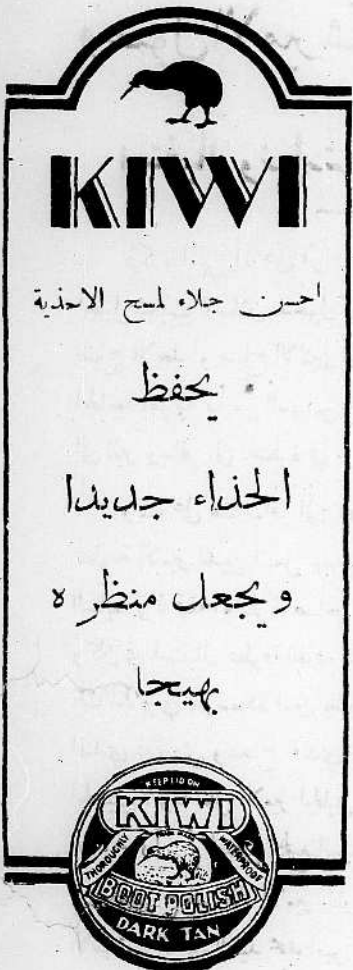 KIWI
احسن جلاء لمسح الاحذية
يحفظ
الحذاء جديدا
و يجعل منظره
بهيجا
KEEP LID ON
KIWI
THOROUGHLY WATERPROOF
BOOT POLISH
DARK TAN